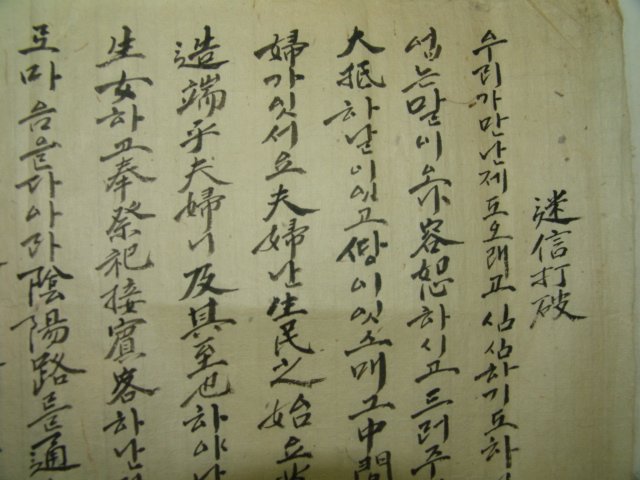 迷信打破
우리가만난제도오래고심심하기도하
업는말이亦容恕하시고드러주
大抵하날이잇고땅이잇스매그中間
婦가잇서요夫婦난生民之始요
造端乎夫婦니及其至也하야난
生女하고奉祭祀接賓客하난
로마음을다아라陰陽路를通